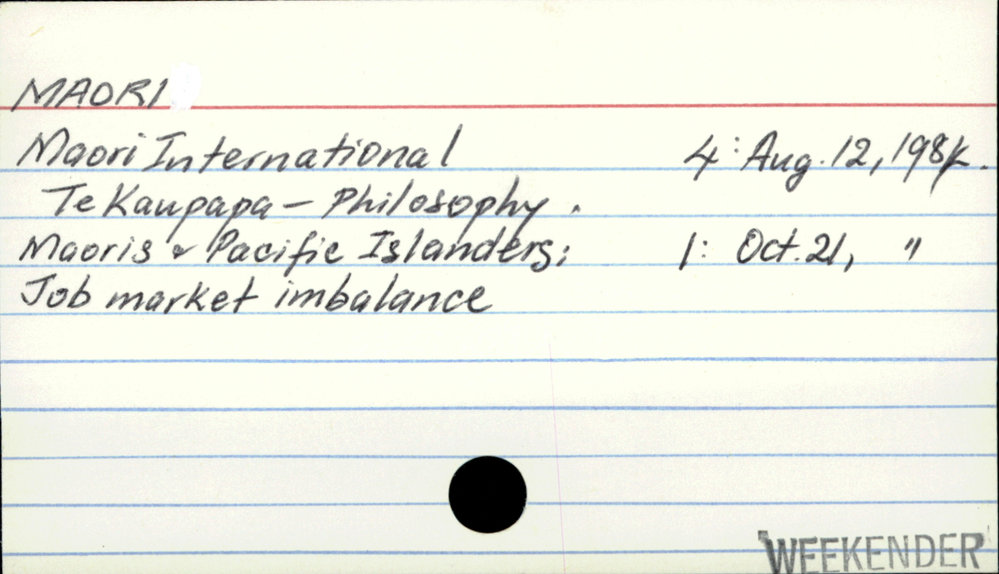 MAORI
Maori International 4: Aug. 12,
Te Kaupapa - Philosophy.
Maoris & Pacific Islanders; 1: Oct. 21, "
Job market imbalance
WEEKENDER